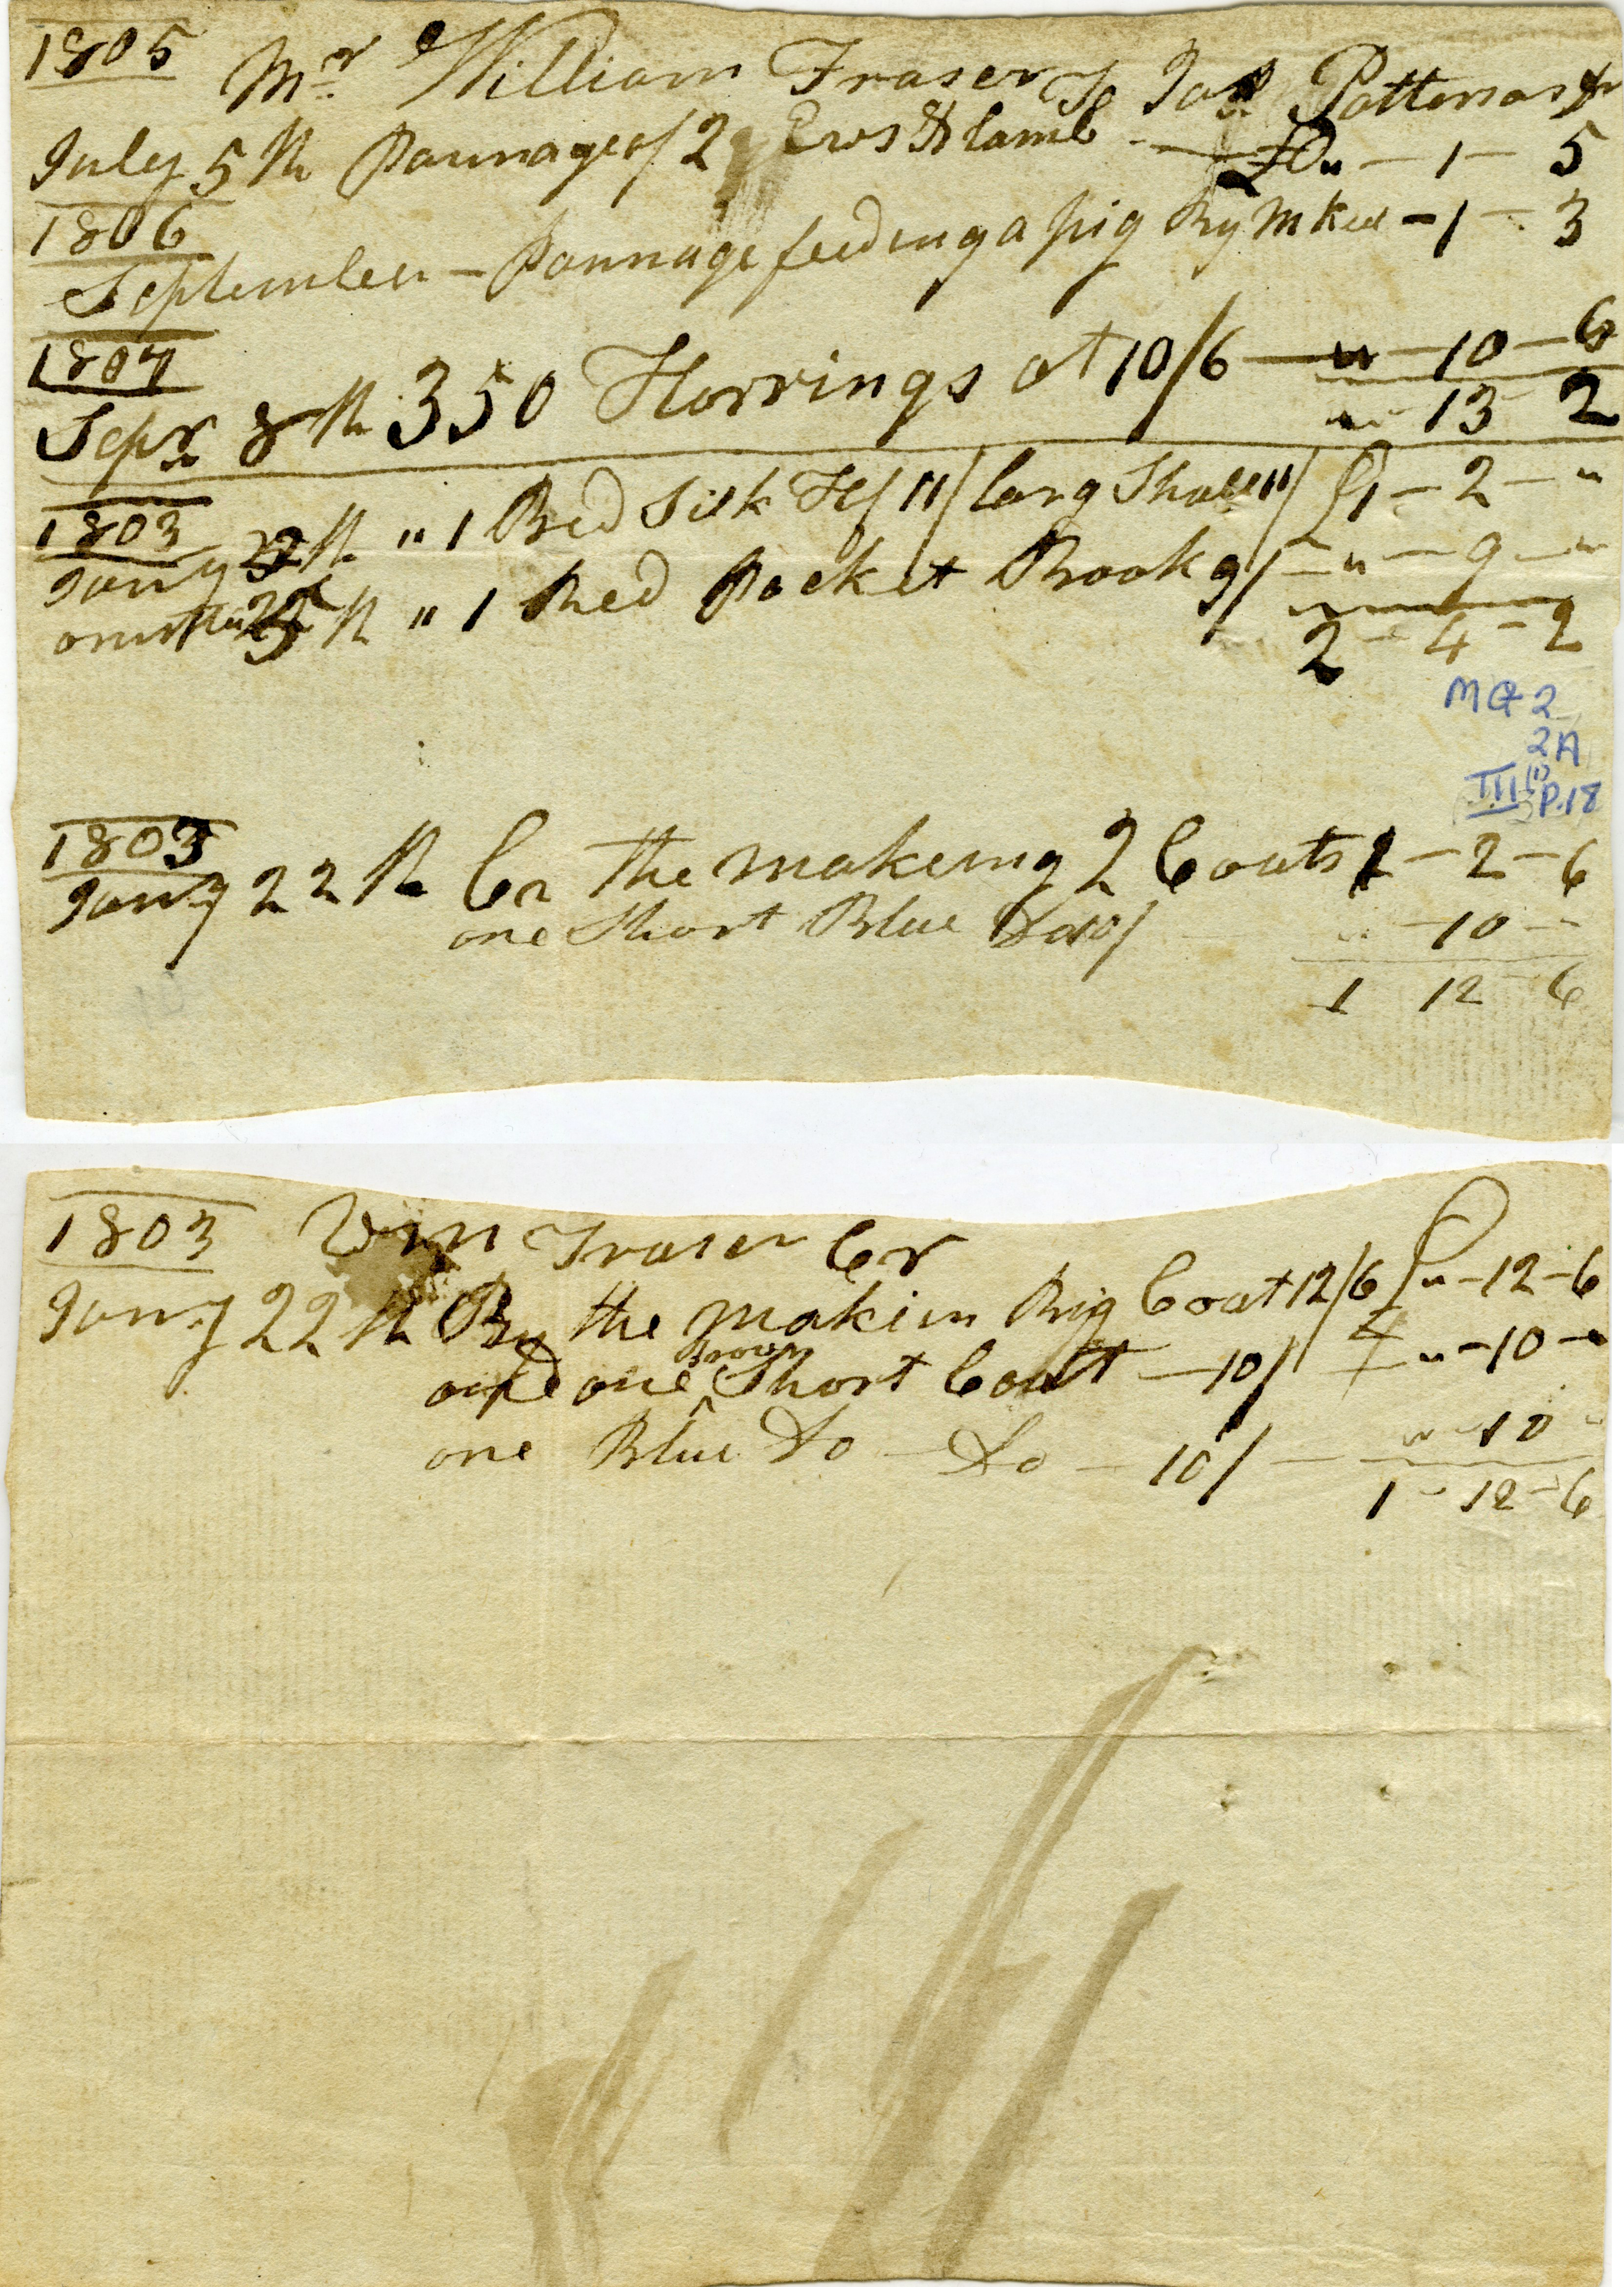 1805
Mr William Fraser To Jas Patterson Dr
July 5th Pannage of 2 Ews & lamb £0 " - 1 - 5
1806
September - Pannage feeding a pig By - 1 - 3
1807
Sepr 8th 350 Harrings at 10/6 " - 10 - 6
" 13 2
1803
Jany th " 1 Red Silk Hf 11/ larg 11/ £1 - 2 - "
th " 1 Red Pocket Book 9/ - " - 9 - "
2 - 4 - 2
MG 2
2A
III (1)
P.18
1803
Jany 22th Cr the makeing 2 Coats 1 - 2 - 6
one Short Blue Do 10/ " - 10 -
1 12 6
1803 Wm Fraser Cr
Jany 22th By the makin Big Coat 12/6 £ " - 12 - 6
Brown
and one ^ Short Coat - 10/ " - 10 - "
one Blue Do - Do - 10/ - " - 10 -
1 - 12 - 6